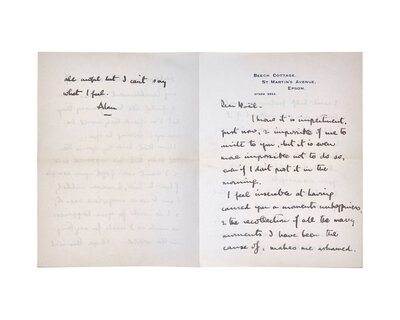 all awful but I can't say
what I feel.
Alan
BEECH COTTAGE,
ST MARTIN'S AVENUE,
EPSOM.
Dear Noël.
I know it is impertinent,
just now, & impossible of me to
write to you, but it is even
more impossible not to do so,
even if I don't post it in the
morning.
I feel miserable at having
caused you a moments unhappiness
& the recollection of all the many
moments I have been the
cause of, makes me ashamed.